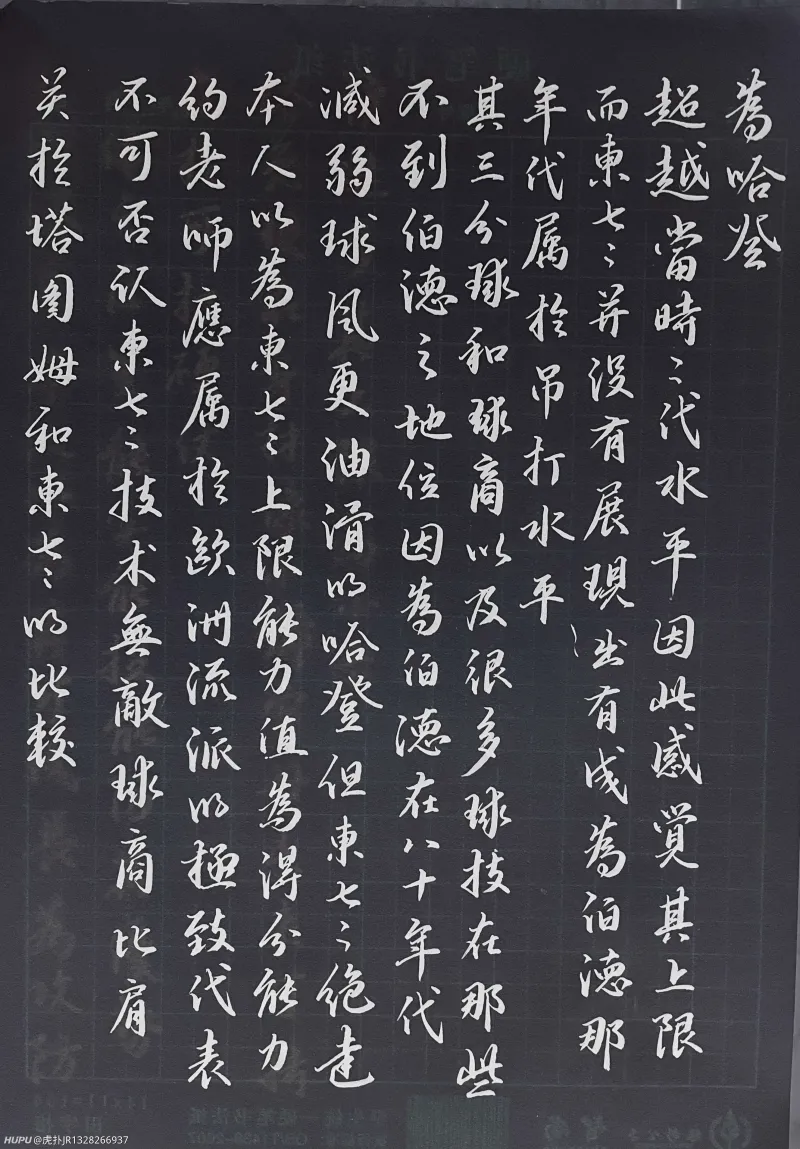 关於塔图姆和東七々的比較
不可否认東七々技术無敵球商比肩
約老师應属於歐洲流派的極致代表
本人以為東七々上限能力值為得分能力
減弱球风更油滑的哈登但東七々绝達
不到伯德之地位因為伯德在八十年代
其三分球和球商以及很多球技在那些
年代属於吊打水平
而東七々并没有展現出有成為伯德那
超越當時々代水平因此感覺其上限
為哈登
HUPU @虎扑JR1328266937